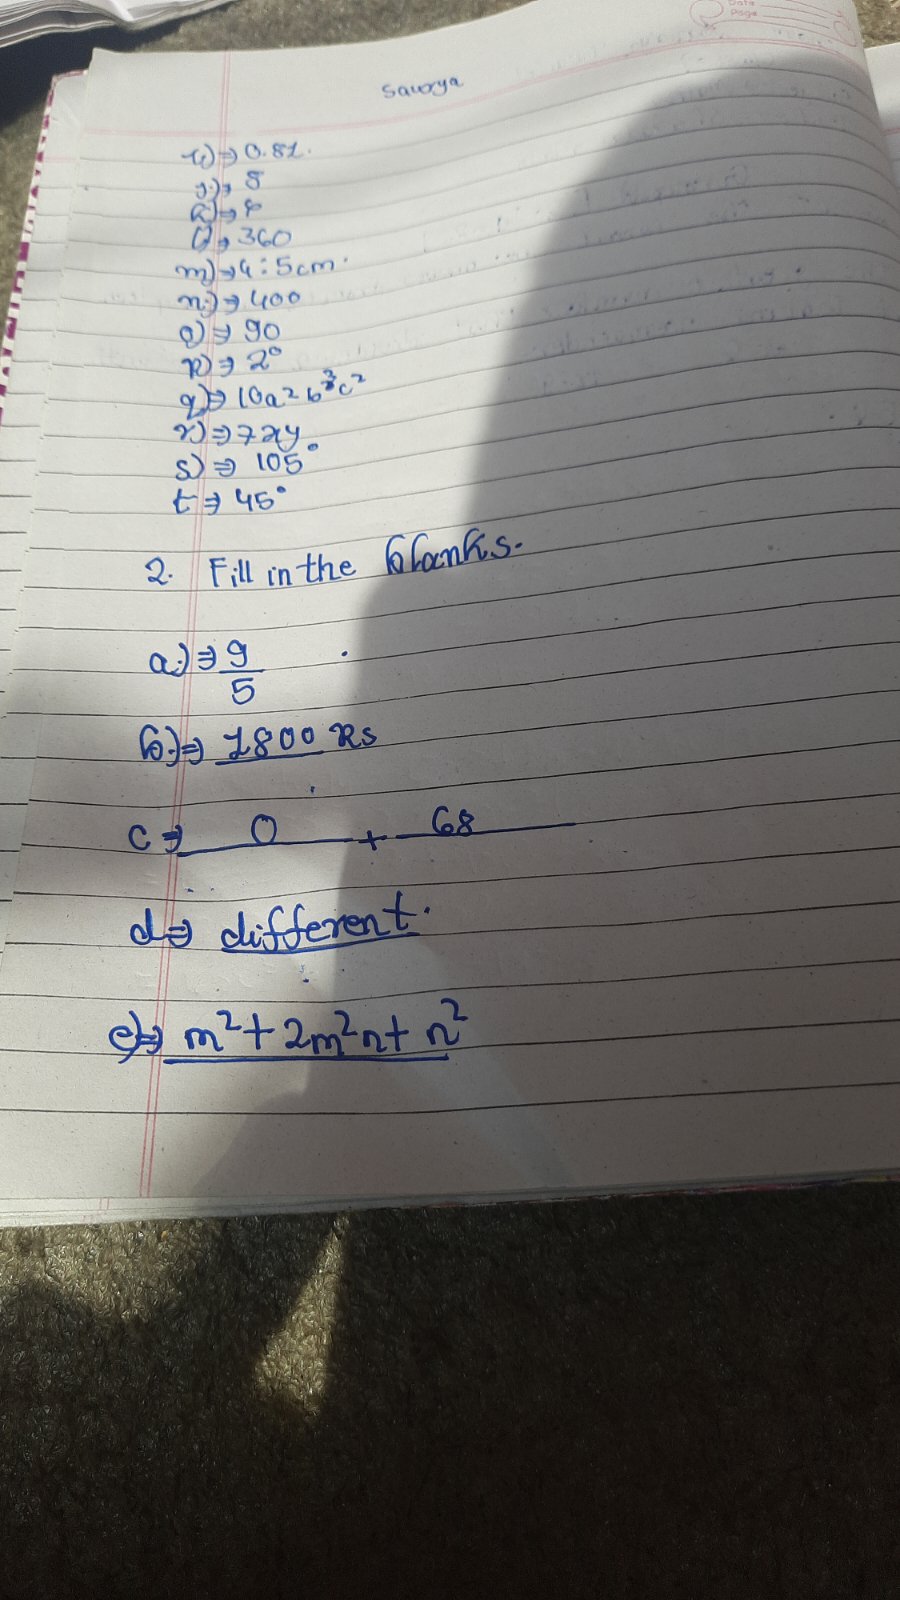 Date
Page
Saurya
i) ⇒ 0.81.
j) ⇒ 8
l) ⇒ 360
m) ⇒ 4:5cm.
n) ⇒ 400
o) ⇒ 90
p) ⇒ 2°
q) ⇒ 10a²b³c²
r) ⇒ 7xy
s) ⇒ 105°
t ⇒ 45°
2. Fill in the blanks.
a.) ⇒ 9/5
b.) ⇒ 1800 Rs
c ⇒ 0 + 68
d ⇒ different.
e) ⇒ m² + 2m²n + n²